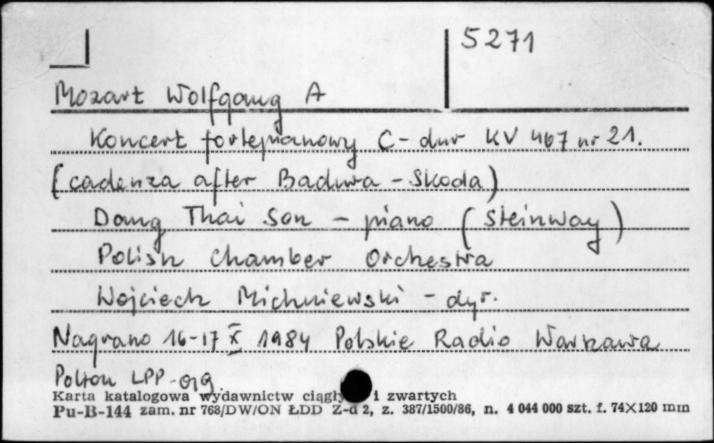 5271
Mozart Wolfgang A
Koncert fortepianowy C-dur KV 467 nr 21.
(cadenza after Badura-Skoda)
Dang Thai Son - piano (Steinway)
Polish Chamber Orchestra
Wojciech Michniewski - dyr.
Nagrano 16-17 X 1984 Polskie Radio Warszawa
Polton LPP-019
Karta katalogowa wydawnictw ciągły i zwartych
Pu-B-144 zam. nr 768/DW/ON ŁDD Z-d 2, z. 387/1500/86, n. 4 044 000 szt. f. 74×120 mm